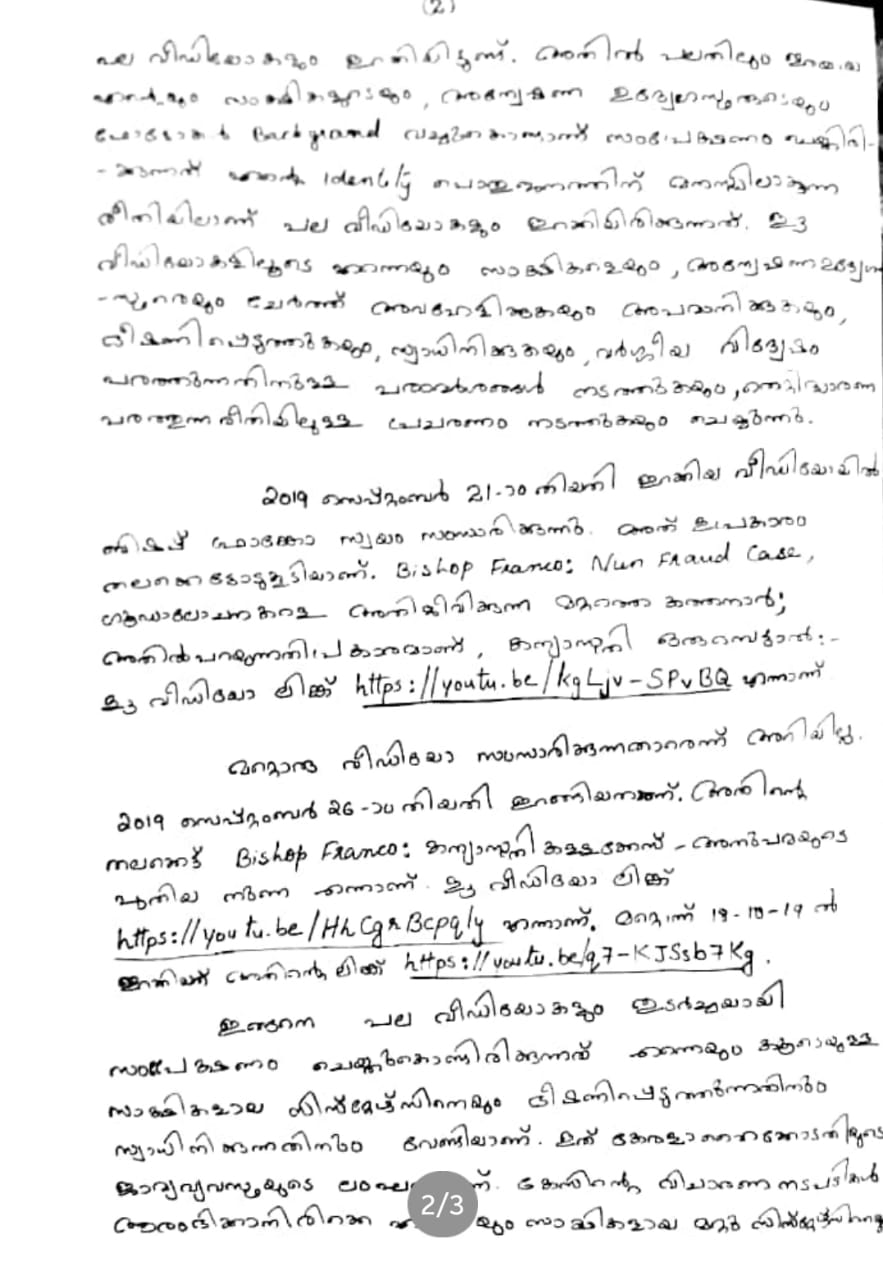 (2)
പല വീഡിയോകളും ഇറക്കിയിട്ടുണ്ട്. അതിൽ പലതിലും
എന്റെയും സാക്ഷികളുടെയും, അന്വേഷണ ഉദ്യോഗസ്ഥരുടെയും
ഫോട്ടോകൾ Background വച്ചുകൊണ്ടാണ് സംപ്രേക്ഷണം ചെയ്തിരി-
-ക്കുന്നത് എന്റെ Identity പൊതുജനത്തിന് മനസ്സിലാകുന്ന
രീതിയിലാണ് പല വീഡിയോകളും ഇറക്കിയിരിക്കുന്നത്. ഈ
വീഡിയോകളിലൂടെ എന്നെയും സാക്ഷികളെയും, അന്വേഷണ ഉദ്യോഗ
-സ്ഥരെയും ചേർത്ത് അവഹേളിക്കുകയും അപമാനിക്കുകയും,
ഭീഷണിപ്പെടുത്തുകയും, സ്വാധീനിക്കുകയും, വർഗ്ഗീയ വിദ്വേഷം
പരത്തുന്നതിനുള്ള പരാമർശങ്ങൾ നടത്തുകയും, തെറ്റിദ്ധാരണ
പരത്തുന്ന രീതിയിലുള്ള പ്രചരണം നടത്തുകയും ചെയ്യുന്നു.
2019 സെപ്റ്റംബർ 21-ാം തിയതി ഇറക്കിയ വീഡിയോയിൽ
ബിഷപ്പ് ഫ്രാങ്കോ സ്വയം സംസാരിക്കുന്നു. അത് ഇപ്രകാരം
തലക്കെട്ടോടുകൂടിയാണ്. Bishop Franco: Nun Fraud Case,
ഗൂഡാലോചനകളെ അതിജീവിക്കുന്ന മറ്റൊരു കത്തനാർ;
അതിൽ പറയുന്നതിപ്രകാരമാണ്, കന്യാസ്ത്രീ ഒരുമ്പെട്ടാൽ:-
ഈ വീഡിയോ ലിങ്ക് https://youtu.be/kgLjv-SPvBQ എന്നാണ്
മറ്റൊരു വീഡിയോ സംസാരിക്കുന്നതാരെന്ന് അറിയില്ല.
2019 സെപ്റ്റംബർ 26-ാം തിയതി ഇറങ്ങിയതാണ്. അതിന്റെ
തലക്കെട്ട് Bishop Franco: കന്യാസ്ത്രീ കള്ളക്കേസ് - അനുപമയുടെ
പുതിയ നുണ എന്നാണ്. ഈ വീഡിയോ ലിങ്ക്
https://youtu.be/HhCgrBcpqly എന്നാണ്. മറ്റൊന്ന് 19-10-19 ൽ
ഇറക്കിയത് അതിന്റെ ലിങ്ക് https://youtu.be/q7-KJSsb7Kg.
ഇങ്ങനെ പല വീഡിയോകളും തുടർച്ചയായി
സംപ്രേക്ഷണം ചെയ്തുകൊണ്ടിരിക്കുന്നത് എന്നെയും കൂടെയുള്ള
സാക്ഷികളായ സിസ്റ്റേഴ്സിനെയും ഭീഷണിപ്പെടുത്തുന്നതിനും
സ്വാധീനിക്കുന്നതിനും വേണ്ടിയാണ്. ഇത് കേരളാ ഹൈക്കോടതിയുടെ
ജാമ്യവ്യവസ്ഥയുടെ കേസിന്റെ വിചാരണ നടപടികൾ
ആരംഭിക്കാനിരിക്കെ സാക്ഷികളായ മറ്റു
2/3